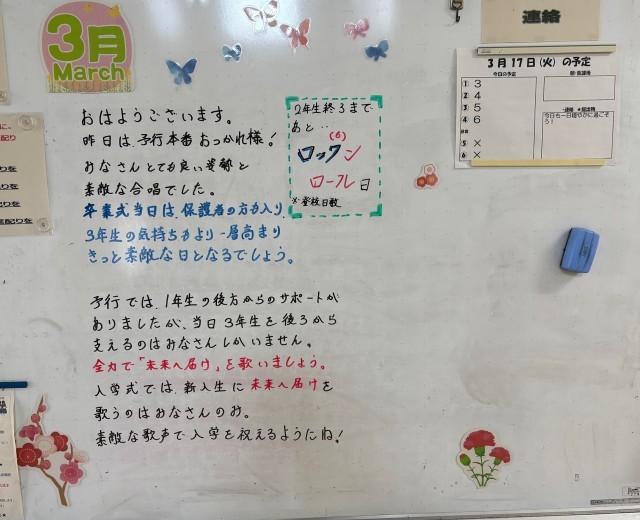 3月
March
おはようございます。
昨日は、予行本番おつかれ様!
みなさんとても良い姿勢と
素敵な合唱でした。
卒業式当日は、保護者の方が入り、
3年生の気持ちがより一層高まり
きっと素敵な日となるでしょう。
予行では、1年生の後方からのサポートが
ありましたが、当日3年生を後ろから
支えるのはみなさんしかいません。
全力で「未来へ届け」を歌いましょう。
入学式では、新入生に未来へ届けを
歌うのはみなさんのみ。
素敵な歌声で入学を祝えるようにね!
2年生終了まで
あと…
(6)
ロックン
ロール日
※登校日数
連絡
3月17日(火)の予定
今日の予定
① 3
② 4
③ 5
④ 6
⑤ ×
⑥ ×
今日も一日穏やかに過ごそう!